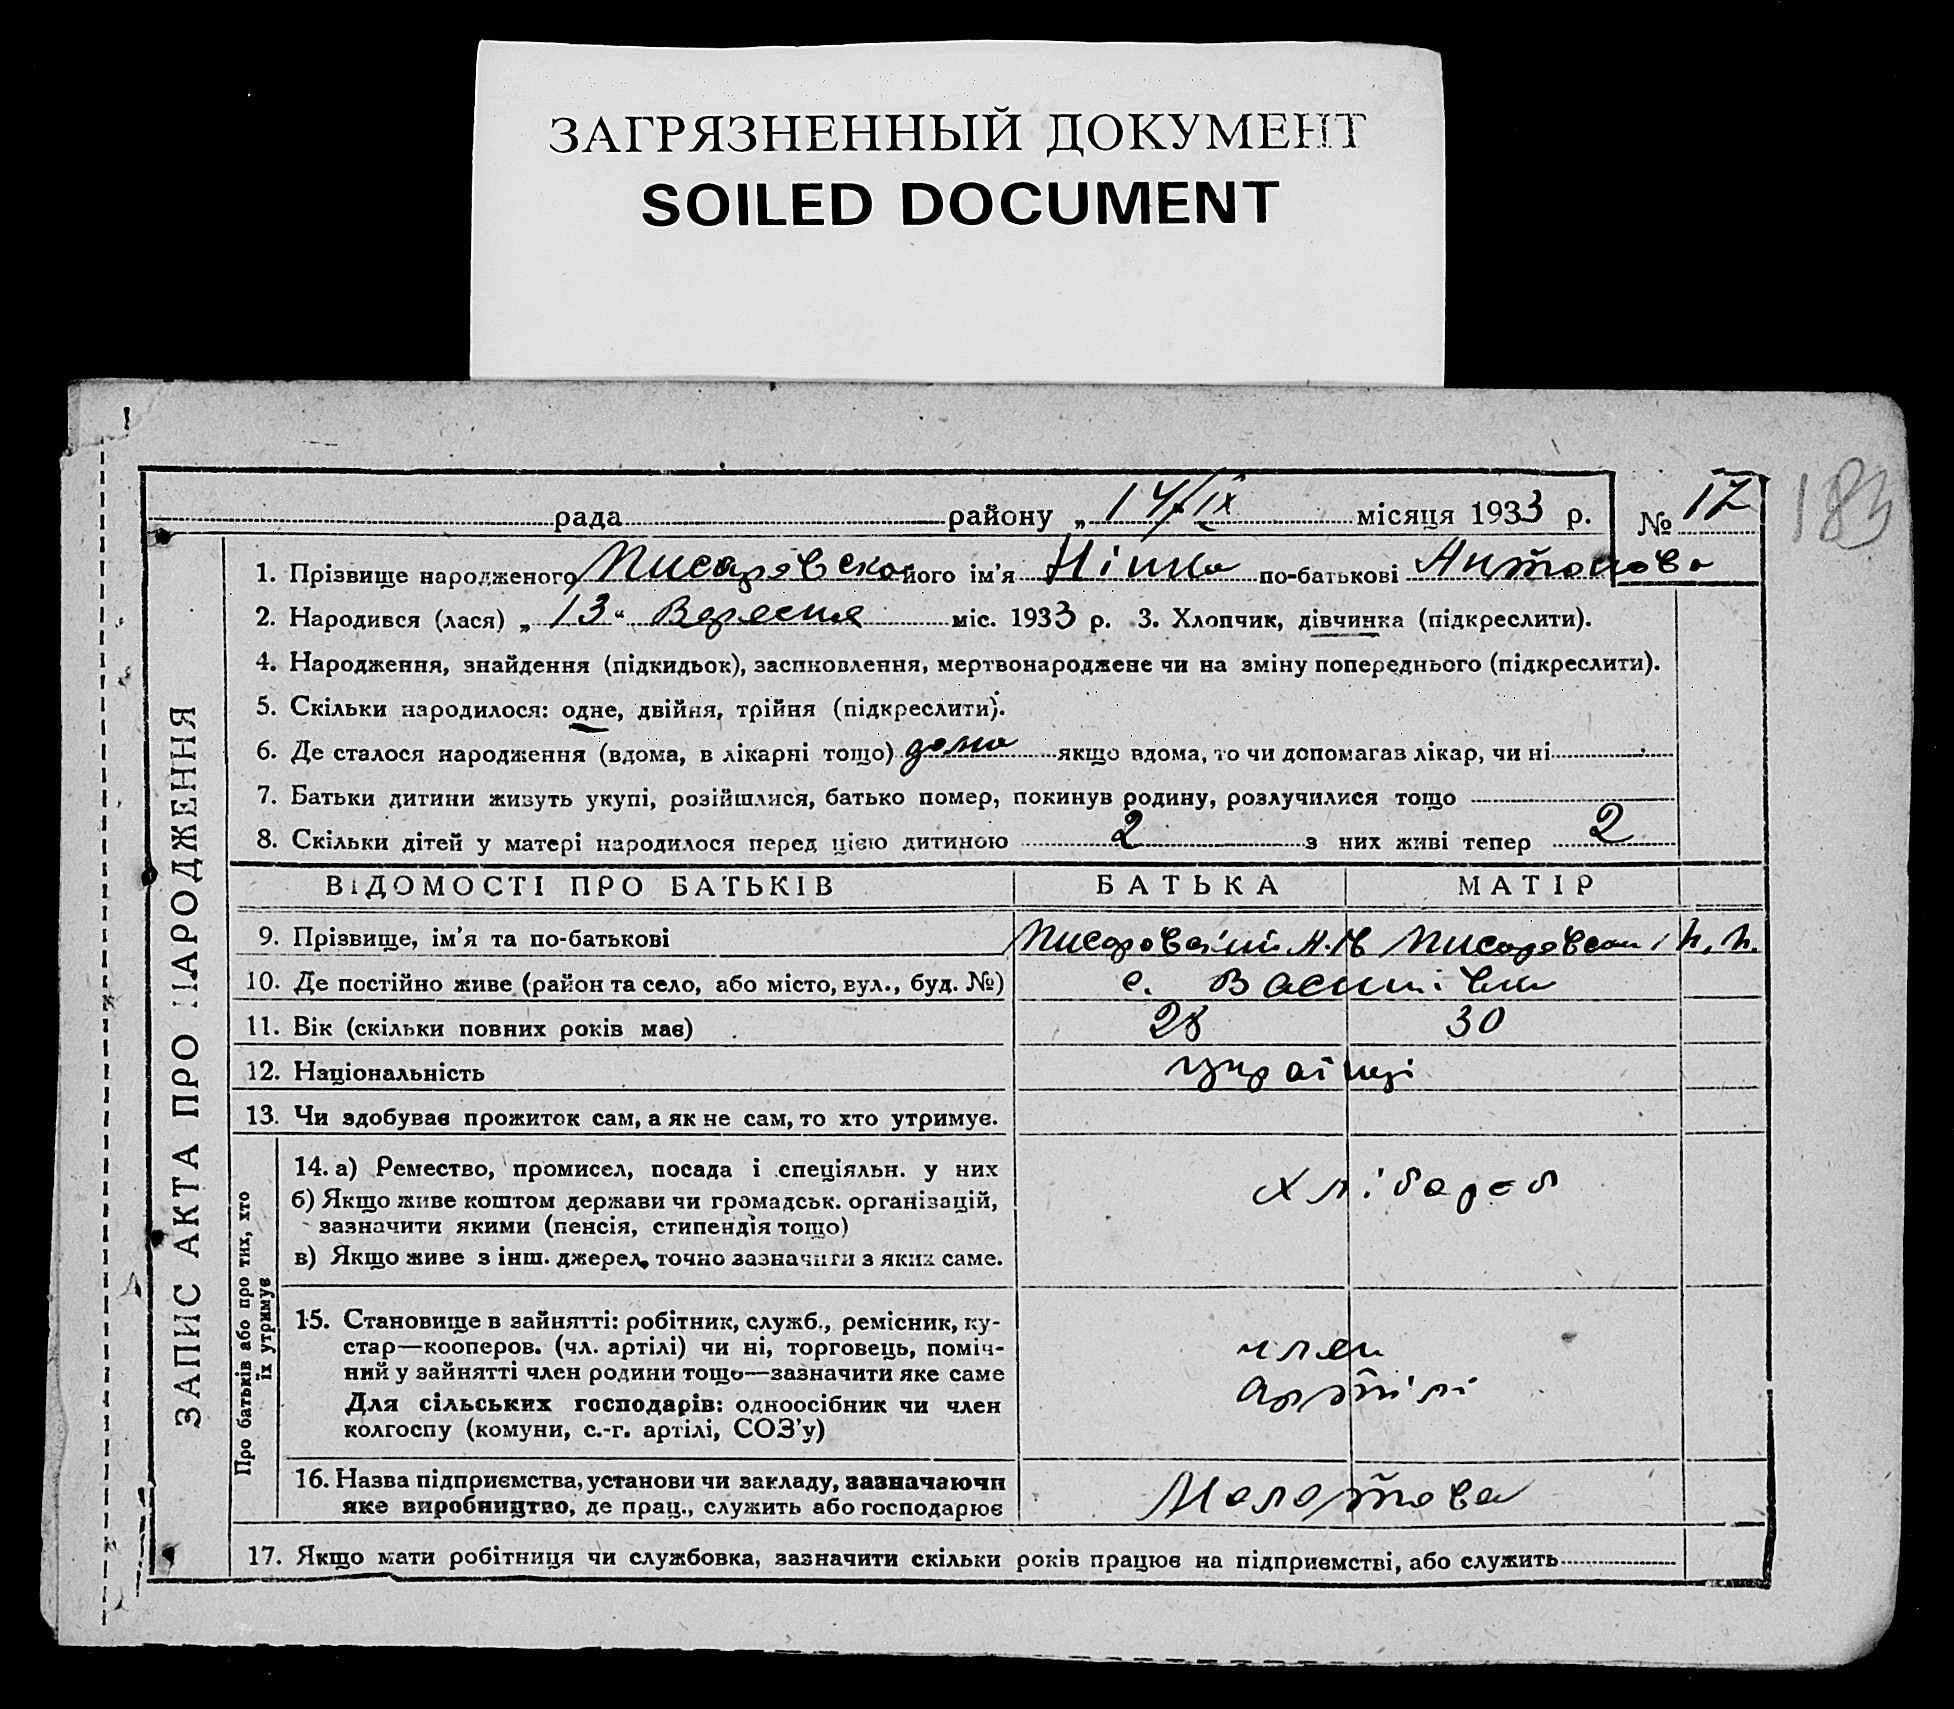 ЗАГРЯЗНЕННЫЙ ДОКУМЕНТ
SOILED DOCUMENT
183
рада района „ 14/IX місяця 1933 р. № 17
ЗАПИС АКТА ПРО НАРОДЖЕННЯ
1. Прізвище народженого Писаревско його ім’я Ніна по-батькові Антонова
2. Народився (лася) „ 13 “ Вересня міс. 1933 р. 3. Хлопчик, дівчинка (підкреслити).
4. Народження, знайдення (підкидьок), засиновлення, мертвонароджене чи на зміну попереднього (підкреслити).
5. Скільки народилося: одне, двійня, трійня (підкреслити).
6. Де сталося народження (вдома, в лікарні тощо) дома якщо вдома, то чи допомагав лікар, чи ні
7. Батьки дитини живуть укупі, розійшлися, батько помер, покинув родину, розлучилися тощо
8. Скільки дітей у матері народилося перед цією дитиною 2 з них живі тепер 2
ВІДОМОСТІ ПРО БАТЬКІВ БАТЬКА МАТІР
9. Прізвище, ім’я та по-батькові Писаревський А. Писаревська
10. Де постійно живе (район та село, або місто, вул., буд. №) с. Василівка
11. Вік (скільки повних років має) 28 30
12. Національність українці
13. Чи здобував прожиток сам, а як не сам, то хто утримує.
Про батьків або про тих, хто
їх утримує
14. а) Ремество, промисел, посада і спеціяльн. у них хлібороб
б) Якщо живе коштом держави чи громадськ. організацій,
зазначити якими (пенсія, стипендія тощо)
в) Якщо живе з інш. джерел, точно зазначити з яких саме.
15. Становище в зайнятті: робітник, служб., ремісник, ку-
стар—кооперов. (чл. артілі) чи ні, торговець, поміч- член
ний у зайнятті член родини тощо—зазначити яке саме артілі
Для сільських господарів: одноосібник чи член
колгоспу (комуни, с.-г. артілі, СОЗ’у)
16. Назва підприємства, установи чи закладу, зазначаючи Молотова
яке виробництво, де прац., служить або господарює
17. Якщо мати робітниця чи службовка, зазначити скільки років працює на підприємстві, або служить